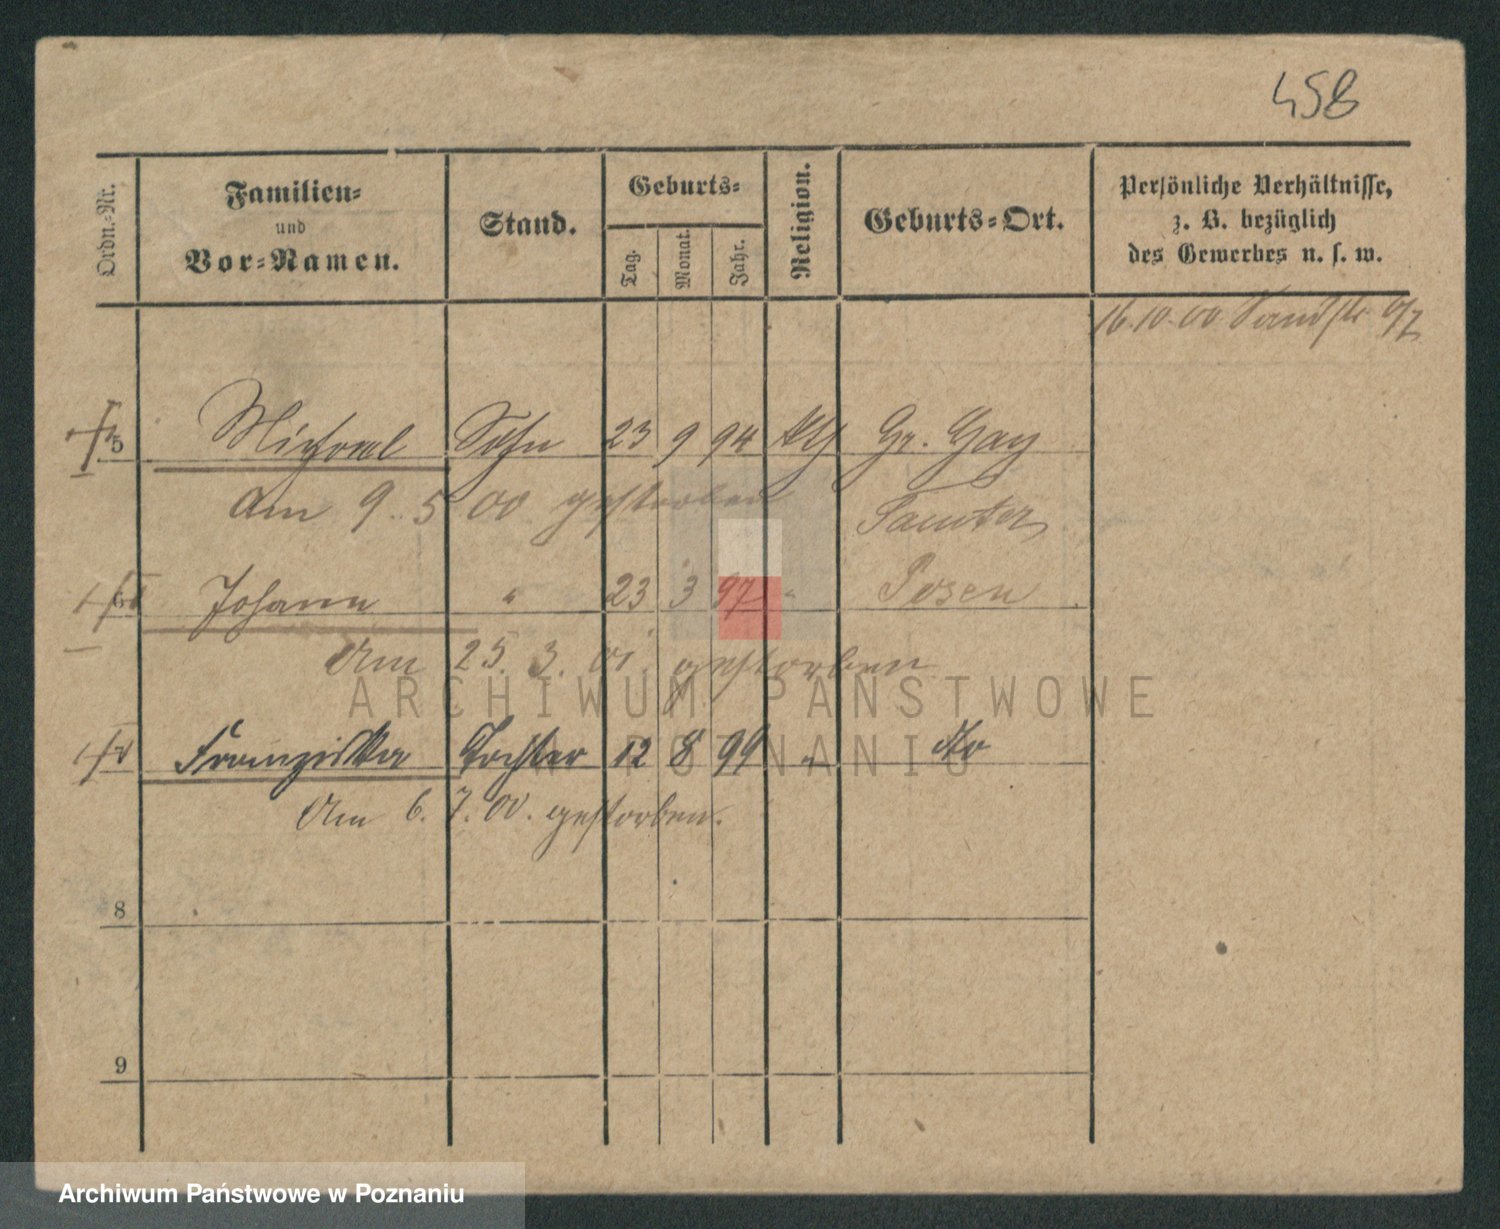 458
Ordn.-Nr.
Familien- und Vor-Namen.
Stand.
Geburts-
Tag. Monat. Jahr.
Religion.
Geburts-Ort.
Persönliche Verhältnisse,
z. B. bezüglich
des Gewerbes u. s. w.
16.10.00 Sandstr.
5 Michael Sohn 23 9 94 Gr. Gay
Am 9. 5 00 gestorben Samter
6 Johann " 23 3 97 " Posen
Am 25. 3. 01. gestorben
ARCHIWUM PAŃSTWOWE
W POZNANIU
Franziska Tochter 12 8 99 " dto
Am 6. 7. 00. gestorben.
8
9
Archiwum Państwowe w Poznaniu